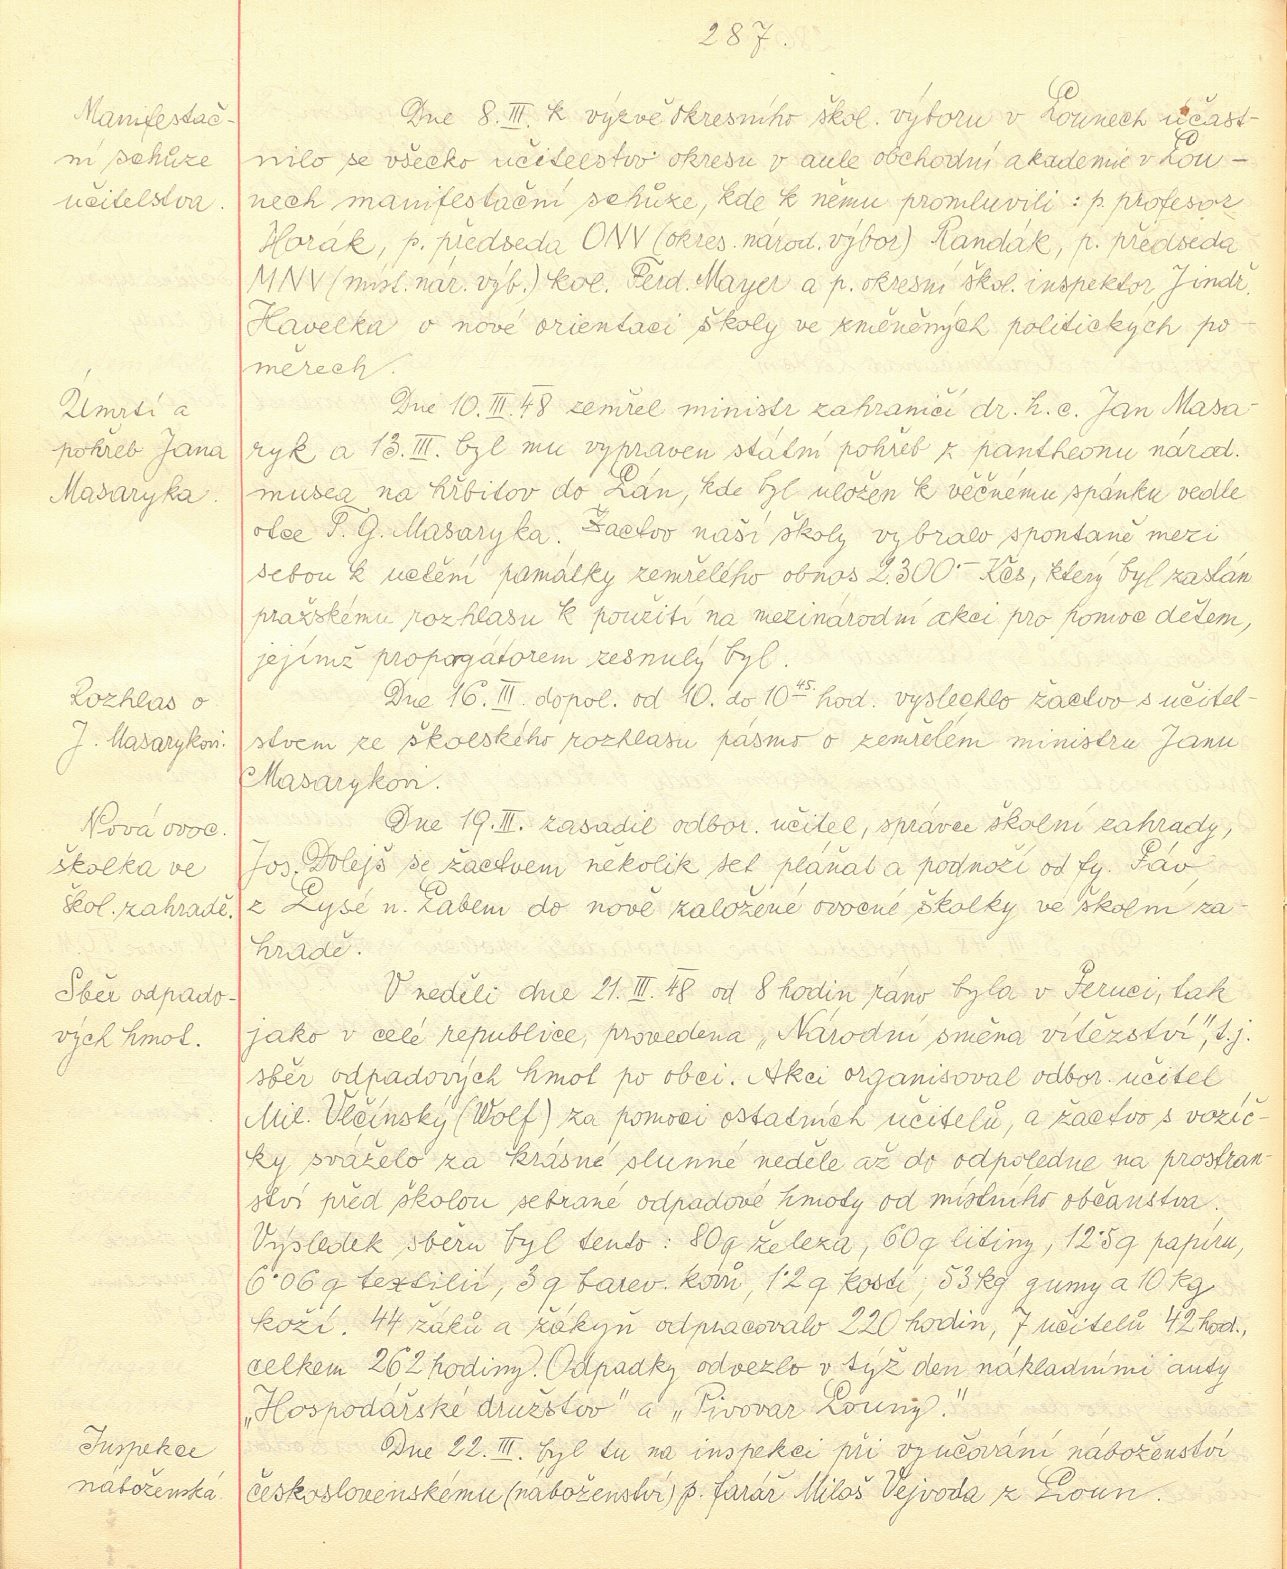 287.
Manifestač-
ní schůze
učitelstva.
Dne 8. III. k výzvě okresního škol. výboru v Lounech účast-
nilo se všecko učitelstvo okresu v aule obchodní akademie v Lou-
nech manifestační schůze, kde k němu promluvili : p. profesor
Horák, p. předseda ONV (okres. národ. výbor) Randák, p. předseda
MNV (míst. nár. výb.) kol. Ferd. Mayer a p. okresní škol. inspektor Jindř.
Havelka o nové orientaci školy ve změněných politických po-
měrech.
Úmrtí a
pohřeb Jana
Masaryka.
Dne 10. III. 48 zemřel ministr zahraničí dr. h. c. Jan Masa-
ryk a 13. III. byl mu vypraven státní pohřeb z pantheonu národ.
musea na hřbitov do Lán, kde byl uložen k věčnému spánku vedle
otce T. G. Masaryka. Žactvo naší školy vybralo spontaně mezi
sebou k uctění památky zemřelého obnos 2.300·- Kčs, který byl zaslán
pražskému rozhlasu k použití na mezinárodní akci pro pomoc dětem,
jejímž propagátorem zesnulý byl.
Rozhlas o
J. Masarykovi.
Dne 16. III. dopol. od 10. do 10 45 hod. vyslechlo žactvo s učitel-
stvem ze školského rozhlasu pásmo o zemřelém ministru Janu
Masarykovi.
Nová ovoc.
školka ve
škol. zahradě.
Dne 19. III. zasadil odbor. učitel, správce školní zahrady,
Jos. Dolejš se žactvem několik set pláňat a podnoží od fy. Páv
z Lysé n. Labem do nově založené ovocné školky ve školní za-
hradě.
Sběr odpado-
vých hmot.
V neděli dne 21. III. 48 od 8 hodin ráno byla v Peruci, tak
jako v celé republice, provedena „Národní směna vítězství", t.j.
sběr odpadových hmot po obci. Akci organisoval odbor. učitel
Mil. Vlčínský (Wolf) za pomoci ostatních učitelů, a žactvo s vozíč-
ky sváželo za krásné slunné neděle až do odpoledne na prostran-
ství před školou sebrané odpadové hmoty od místního občanstva.
Výsledek sběru byl tento : 80q železa, 60q litiny, 12·5q papíru,
6·06 q textilií, 3 q barev. kovů, 1·2 q kostí, 53 kg gumy a 10 kg
koží. 44 žáků a žákyň odpracovalo 220 hodin, 7 učitelů 42 hod.,
celkem 262 hodiny. Odpadky odvezlo v týž den nákladními auty
„Hospodářské družstvo" a „Pivovar Louny."
Inspekce
náboženská
Dne 22. III. byl tu na inspekci při vyučování náboženství
československému (náboženství) p. farář Miloš Vejvoda z Loun.